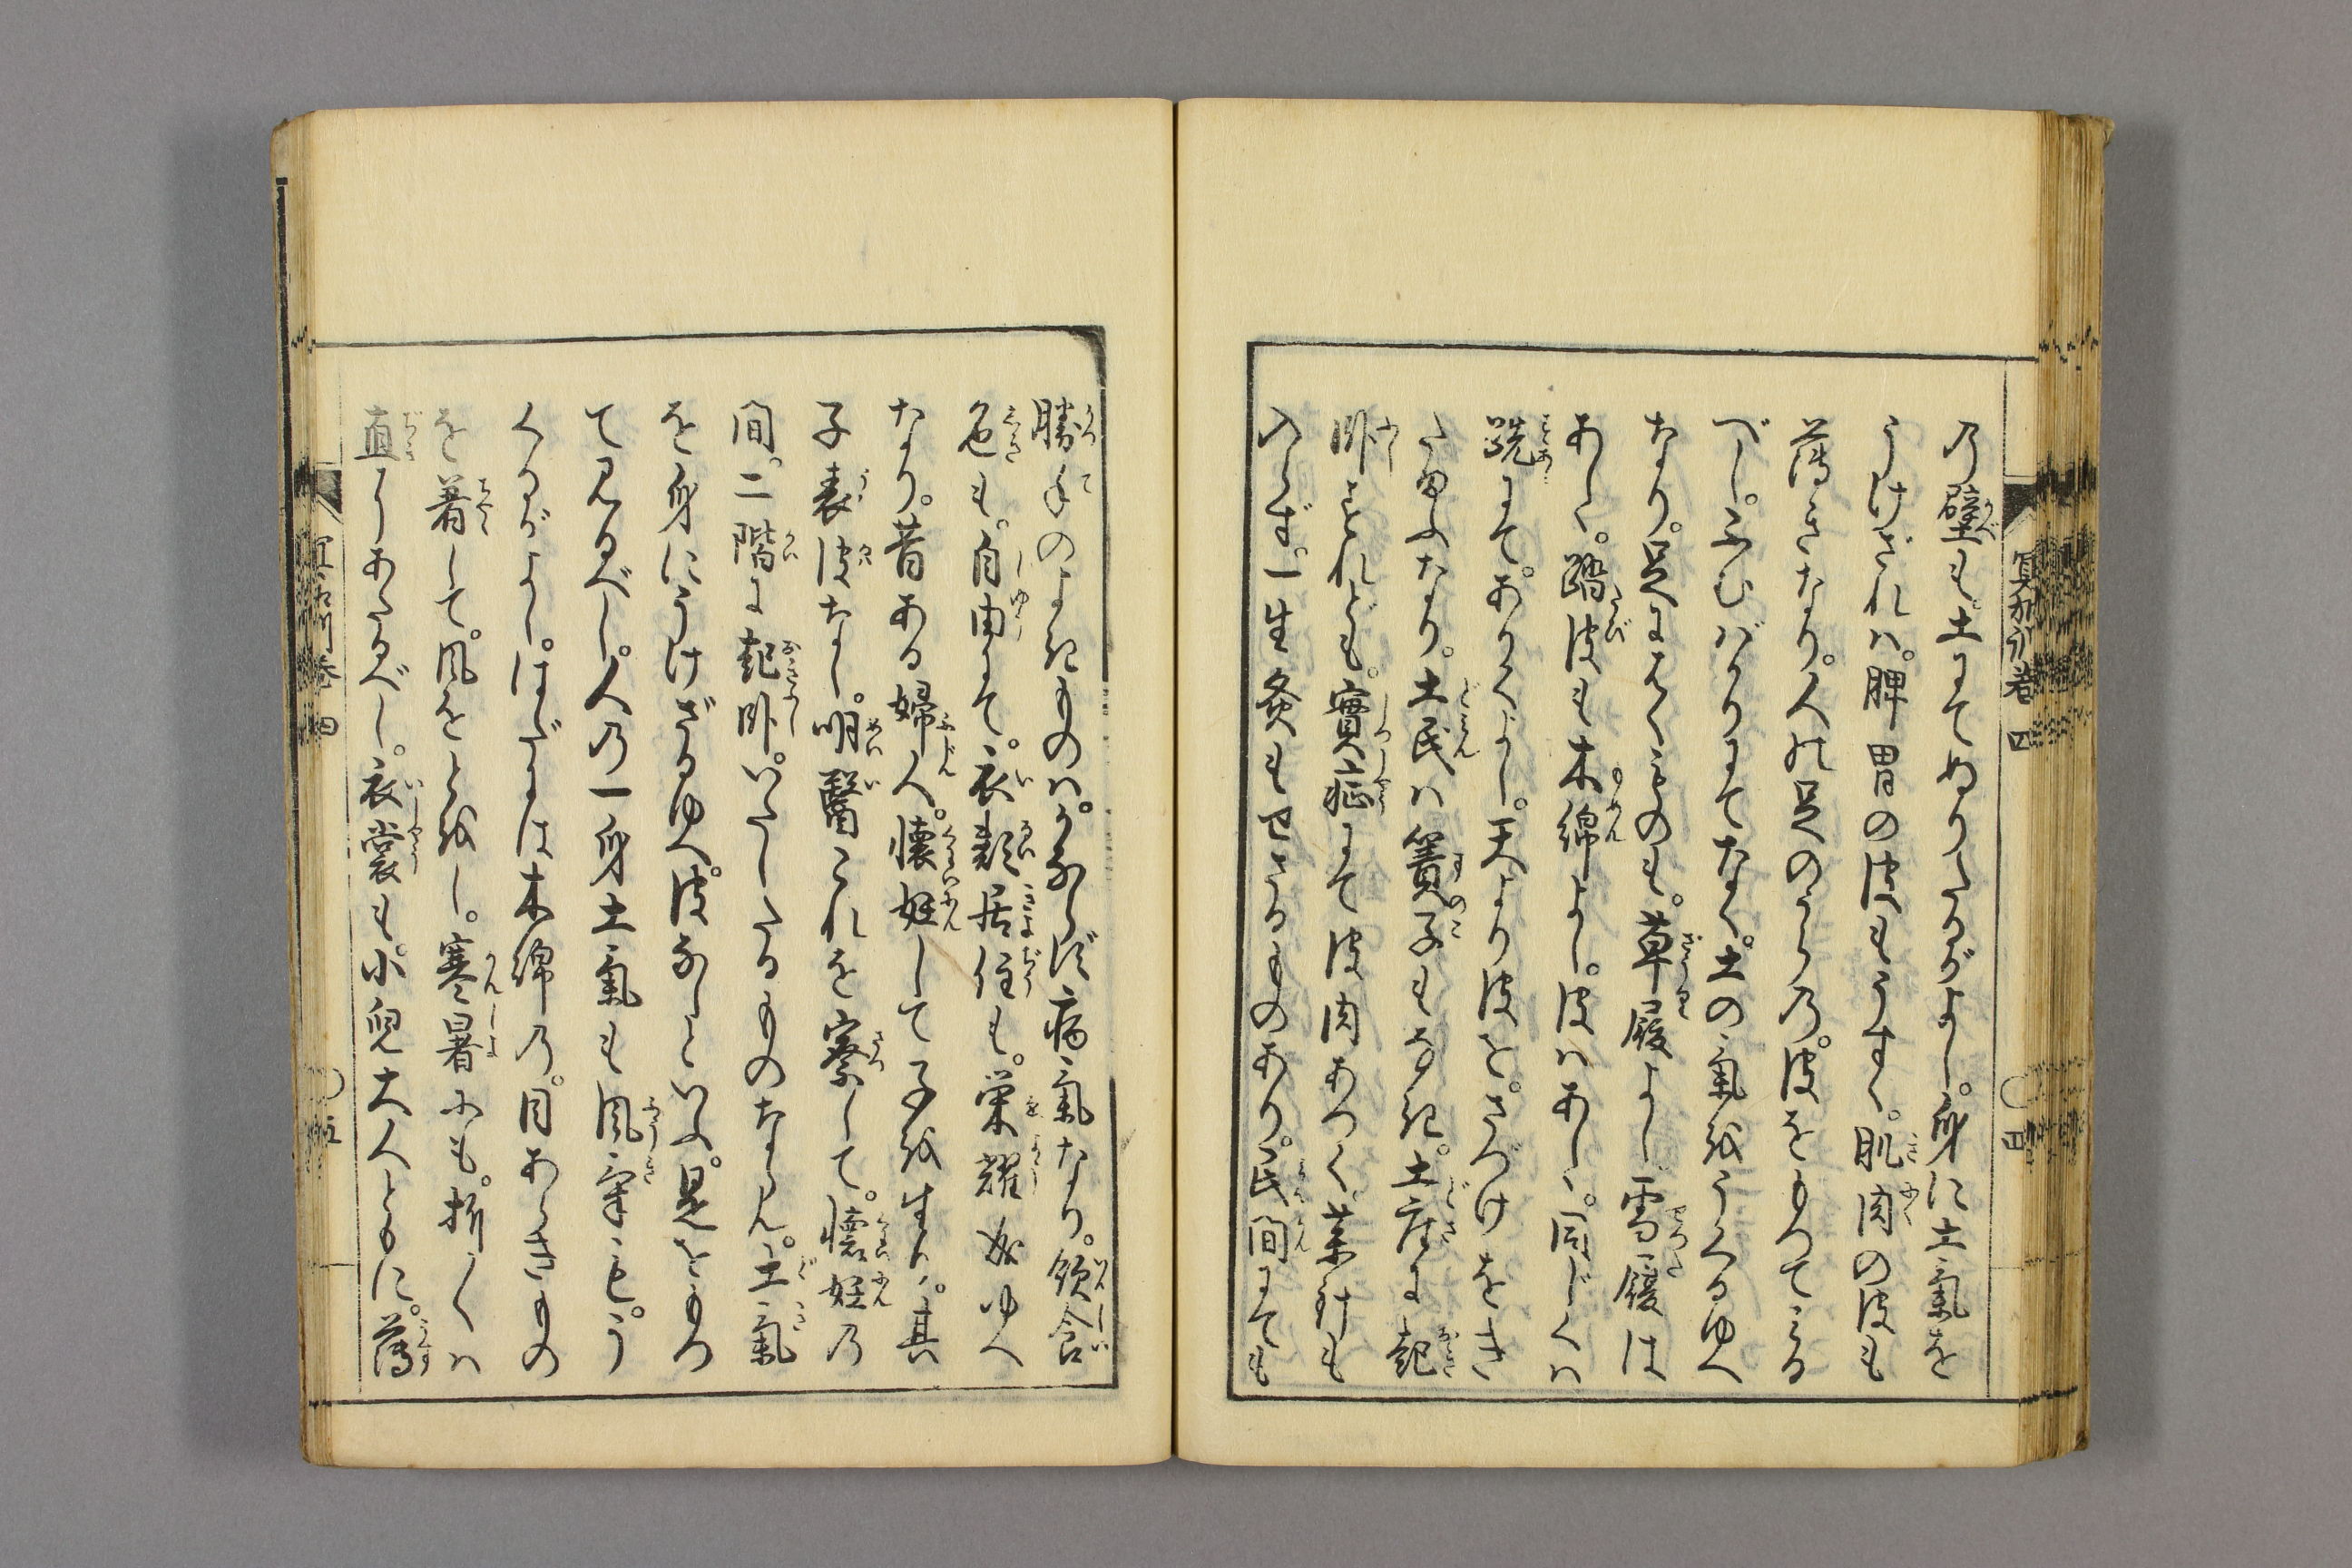 冥加訓巻四
四
乃壁も。土にてぬりたるがよし。身に土氣を
うけざれハ。脾胃の皮もうすく。肌肉の皮も
薄きなり。人の足のうら乃。皮をもつてみる
べし。ふむばかりにてなく。土の氣をうくるゆへ
なり。足にはくものも。草履よし雪踏は
あしく。踏皮も木綿よし。皮ハあしく。同じくハ
跣にて。ありくよし。天より皮を。さづけをき
たまふなり。土民ハ簀子もなき。土座に起
臥すれども。實症にて皮肉あつく。薬針も
入らず。一生灸もせざるものあり。民間にても
勝手のよきものハ。かならず病氣なり。飲食
色も。自由にて。衣類居住も。栄耀なるゆへ
なり。昔ある婦人。懐妊して子を生り。其
子表皮なし。明醫これを察して。懐妊乃
間。二階に起臥。いたしたるものならん。土氣
を身にうけざるゆへ。皮なしといふ。是をもつ
て見るべし。人乃一身土氣も風寒も。う
くるがよし。はだには木綿乃。目あらきもの
を着して。風をとをし。寒暑ふも。折〳〵ハ
直にあたるべし。衣裳も。小兒大人ともに。薄
冥加訓巻四
五